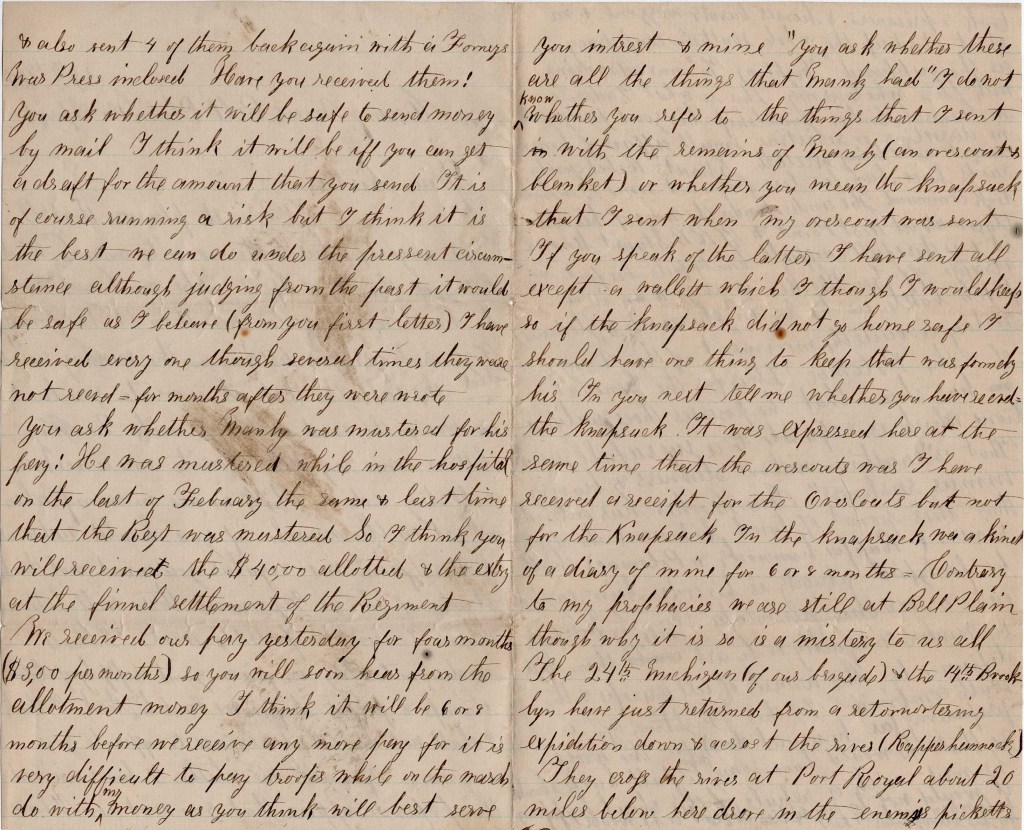 & also sent 4 of them back again with a Forneys
War Press inclosed Have you received them!
You ask whether it will be safe to send money
by mail I think it will be iff you can get
a draft for the amount that you send It is
of course running a risk but I think it is
the best we can do under the pressent circum-
stance although judging from the past it would
be safe as I beleave (from you first letter) I have
received every one though several times they were
not recevd = for months after they were wrote
You ask whether Manly was mustered for his
pay! He was mustered while in the hospital
on the last of Febuary the same & last time
that the Regt was mustered So I think you
will receive the $40,00 allotted & the extry
at the finnel settlement of the Regiment
We received our pay yesterday for four months
($3,00 per months) so you will soon hear from the
allotment money I think it will be 6 or 8
months before we receive any more pay for it is
very difficult to pay troops while on the march
do with my money as you think will best serve
you intrest & mine "you ask whether these
are all the things that Manly had" I do not
know whether you refer to the things that I sent
with the remains of Manly (an overcout &
blanket) or whether you mean the knapsack
that I sent when my overcout was sent
If you speak of the latter I have sent all
except a wallett which I though I would keep
so if the knapsack did not go home safe I
should have one thing to keep that was formely
his In you next tell me whether you have recevd=
the knapsack. It was expressed here at the
same time that the overcouts was I have
received a receipt for the Overcouts but not
for the Knapsack In the knapsack was a kind
of a diary of mine for 6 or 8 months = Contrary
to my prophacies we are still at Bell Plain
though why it is so is a mistery to us all
The 24th Michigan (of our brigade) & the 14th Brook
lyn have just returned from a
expidition down & acrost the river (Rapperhannock)
They cross the river at Port Royal about 20
miles below here drove in the enemys picketts